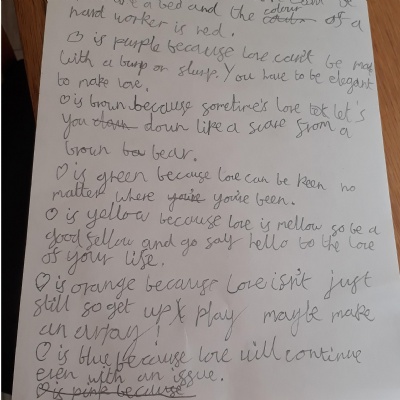 a bed and the colour of a
hard worker is red.
♡ is purple because love can't be made
with a burp or slurp. You have to be elegant
to make love.
♡ is brown because sometime's love let's
you down like a scare from a
brown bear.
♡ is green because love can be keen no
matter where you've been.
♡ is yellow because love is mellow so be a
good fellow and go say hello to the love
of your life.
♡ is orange because love isn't just
still so get up & play maybe make
an array!
♡ is blue because love will continue
even with an issue.
♡ is pink because